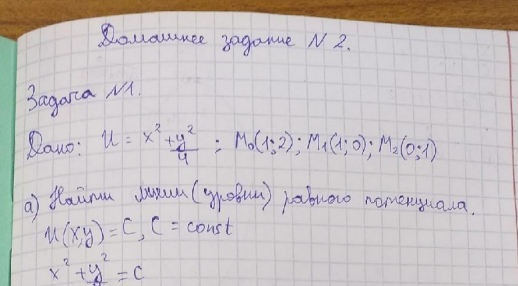 Домашнее задание N 2.
Задача N1.
Дано: U = x² + y²/4 ; M₀(1;2); M₁(1;0); M₂(0;1)
а) Найти линии (уровни) равного потенциала.
U(x,y) = C, C = const
x² + y²/ = C